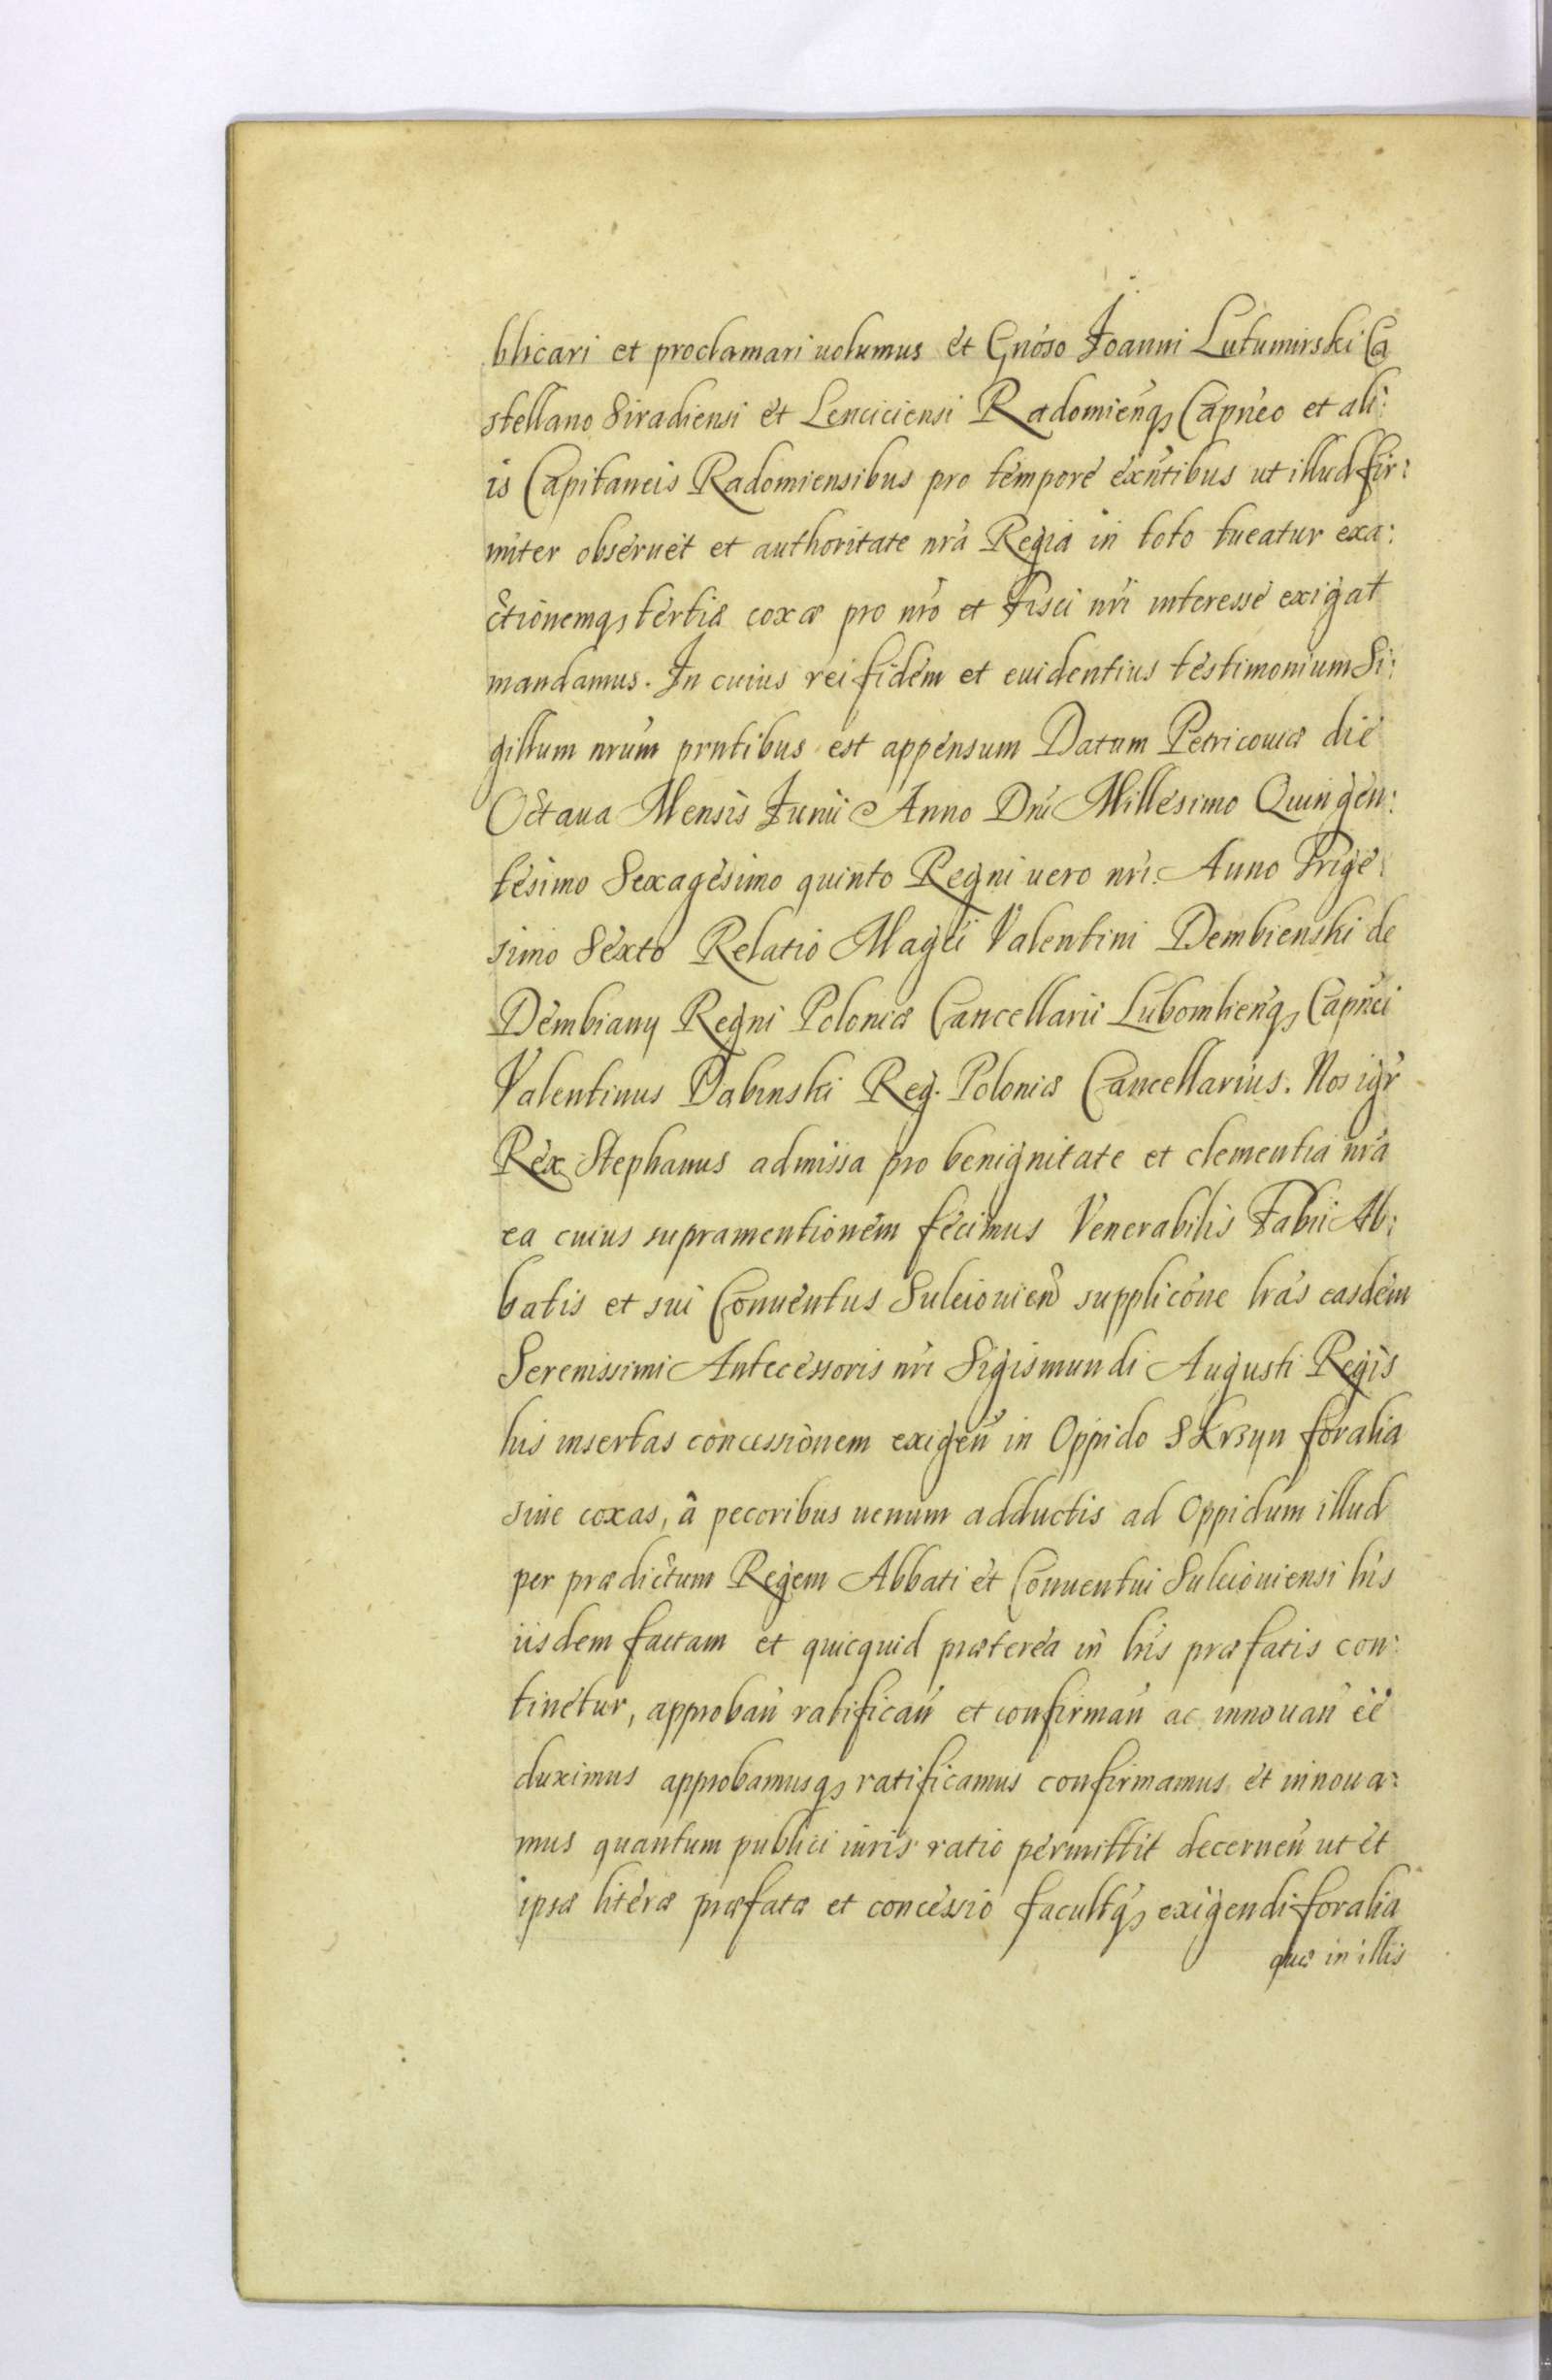 blicari et proclamari uolumus et Gnoso Joanni Lutumirski Ca
stellano Siradiensi et Lenciciensi Radomienq₃ Capneo et ali:
is Capitaneis Radomiensibus pro tempore exntibus ut illud fir:
miter obseruet et authoritate nra Regia in toto tueatur exa:
ctionemq₃ tertiæ coxæ pro nro et Fisci nri interesse exigat
mandamus. In cuius rei fidem et euidentius testimonium Si:
gillum nrum prntibus est appensum Datum Petricouiæ die
Octaua Mensis Junii Anno Dni Millesimo Quingen:
tesimo Sexagesimo quinto Regni uero nri. Anno Trige:
simo Sexto Relatio Magci Valentini Dembienski de
Dembiany Regni Poloniæ Cancellarii Lubomlienq₃ Capnei
Valentinus Dabinski Reg. Poloniæ Cancellarius. Nos igr
Rex Stephanus admissa pro benignitate et clementia nra
ea cuius supra mentionem fecimus Venerabilis Fabii Ab:
batis et sui Conuentus Suleiouien supplicone lras easdem
Serenissimi Antecessoris nri Sigismundi Augusti Regis
his insertas concessionem exigen in Oppido Skrzyn foralia
siue coxas, â pecoribus uenum adductis ad Oppidum illud
per prædictum Regem Abbati et Conuentui Suleiouiensi his
iisdem factam et quicquid præterea in his præfatis con:
tinetur, approban ratifican et confirman ac innouan ee
duximus approbamusq₃ ratificamus confirmamus et innoua:
mus quantum publici iuris ratio permittit decernen ut et
ipsæ literæ præfatæ et concessio facultq₃ exigendi foralia
quæ in illis